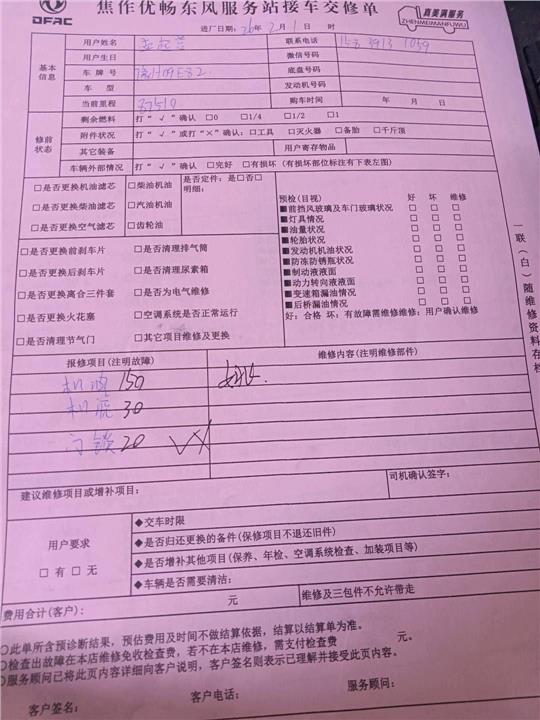 焦作优畅东风服务站接车交修单
DFAC
真要满服务
ZHENMEIMANFUWU
进厂日期：26年2月1日 时
基本信息
用户姓名 联系电话
用户生日 微信号码
车牌号 豫H09E82 底盘号码
车型 发动机号码
当前里程 87510 购车时间 年 月 日
修前状态
剩余燃料 打“√”确认 □0 □1/4 □1/2 □1
附件状况 打“√”或打“×”确认：□工具 □灭火器 □备胎 □千斤顶
其它装备 用户寄存物品
车辆外部情况 打“√”确认 □完好 □有损坏（有损坏部位标注有下表左图）
□是否更换机油滤芯 □柴油机油 是否定件：是□否□
明细：
□是否更换柴油滤芯 □汽油机油
□是否更换空气滤芯 □齿轮油
□是否更换前刹车片 □是否清理排气筒
□是否更换后刹车片 □是否清理尿素箱
□是否更换离合三件套 □是否为电气维修
□是否更换火花塞 □空调系统是否正常运行
□是否清理节气门 □其它项目维修及更换
预检(目视) 好 坏 维修
■前挡风玻璃及车门玻璃状况 □ □ □
■灯具情况 □ □ □
■油量状况 □ □ □
■轮胎状况 □ □ □
■发动机机油状况 □ □ □
■防冻防锈瓶状况 □ □ □
■制动液液面 □ □ □
■动力转向液液面 □ □ □
■变速箱漏油情况 □ □ □
■后桥漏油情况 □ □ □
好：合格 坏：有故障需维修维修：用户确认维修
一联（白）随维修资料存档
报修项目(注明故障) 维修内容(注明维修部件)
机油 150
机滤 30
门锁 20
建议维修项目或增补项目： 司机确认签字：
用户要求
□有 □无
◆交车时限
◆是否归还更换的备件(保修项目不退还旧件)
◆是否增补其他项目(保养、年检、空调系统检查、加装项目等)
◆车辆是否需要清洁：
费用合计(客户)： 元 维修及三包件不允许带走
○此单所含预诊断结果，预估费用及时间不做结算依据，结算以结算单为准。
○检查出故障在本店维修免收检查费，若不在本店维修，需支付检查费 元。
○服务顾问已将此页内容详细向客户说明，客户签名则表示已理解并接受此页内容。
客户签名： 客户电话： 服务顾问：